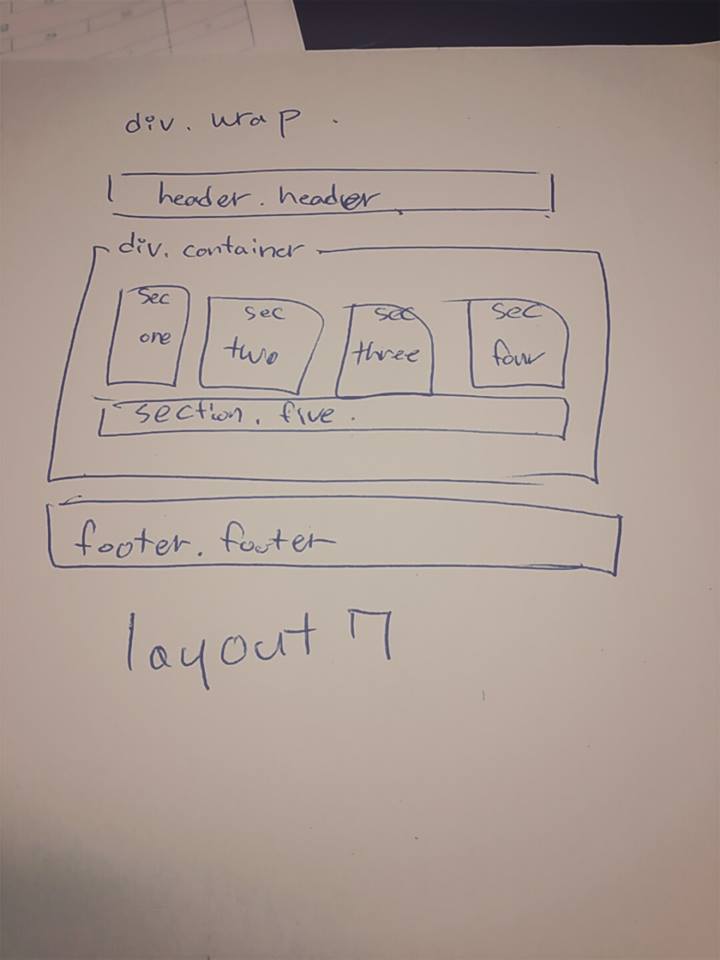 div. wrap.
header. header
div. container
sec one
sec two
sec three
sec four
section. five.
footer. footer
layout 7